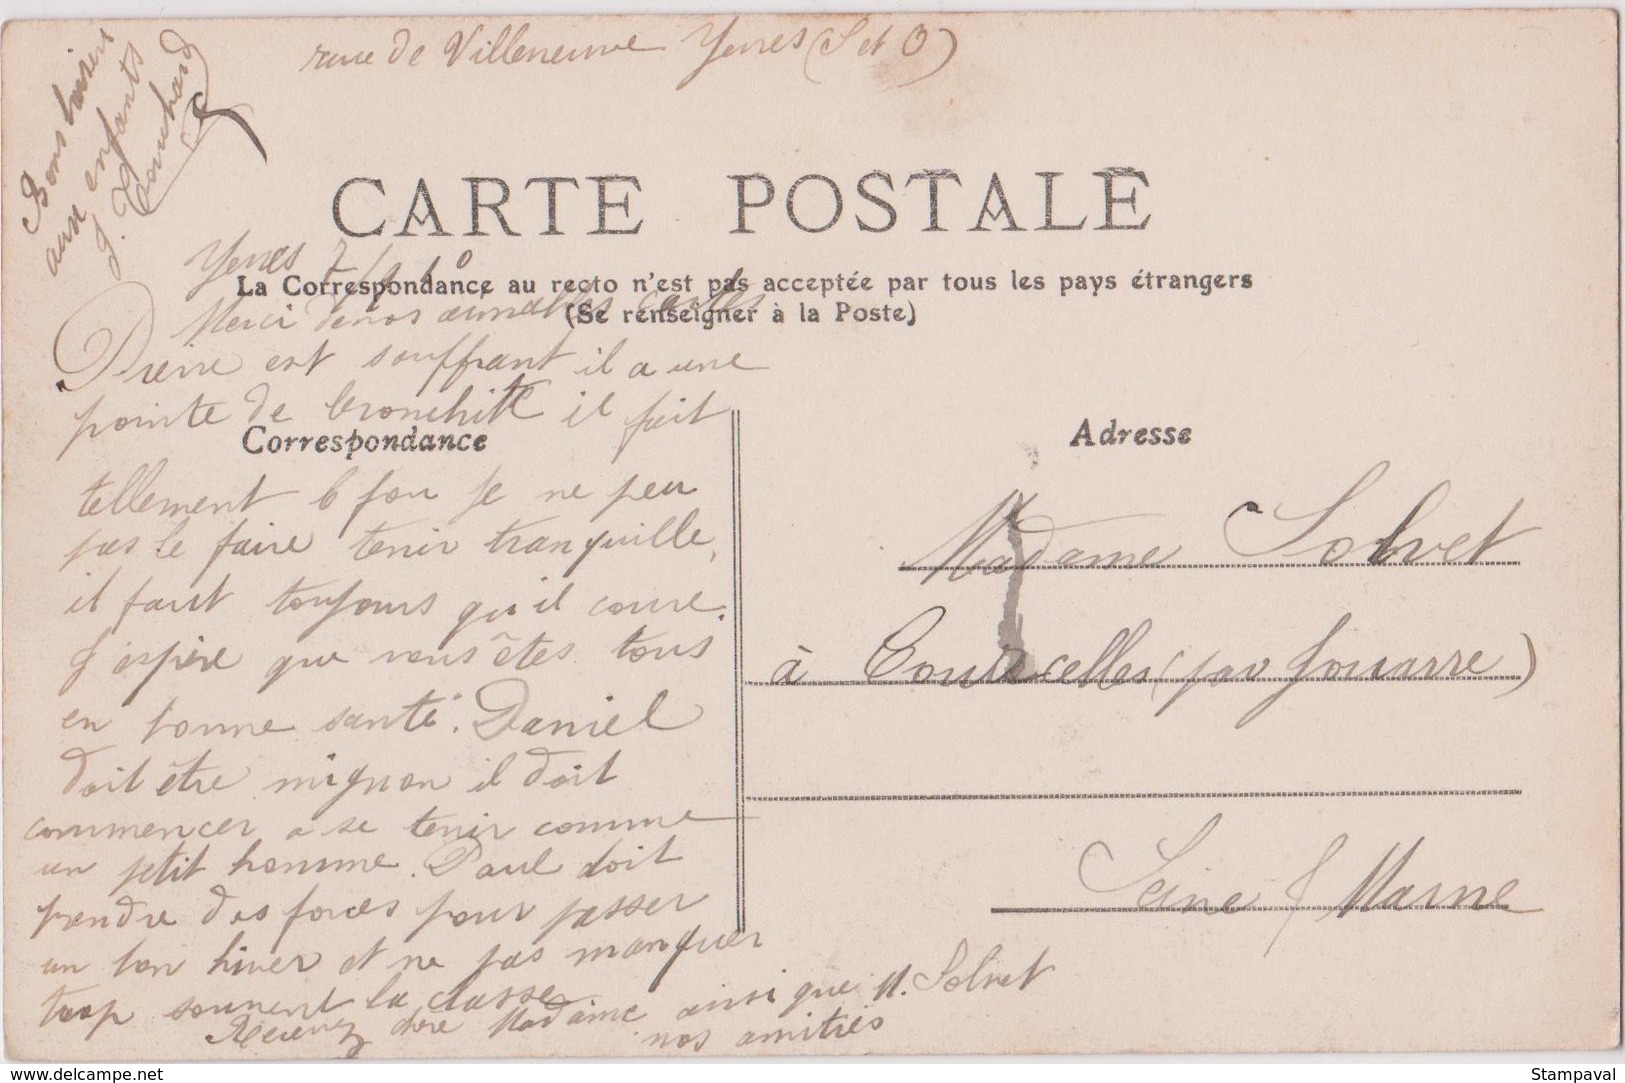 rue de Villeneuve Yerres (S et O)
Bons baisers
aux enfants
CARTE POSTALE
Yerres
La Correspondance au recto n'est pas acceptée par tous les pays étrangers
(Se renseigner à la Poste)
Merci de vos aimables cartes
Pierre est souffrant il a une
pointe de bronchite il fait
Correspondance
tellement le fou je ne peu
pas le faire tenir tranquille,
il faut toujours qu'il coure.
J'espère que vous êtes tous
en bonne santé. Daniel
doit être mignon il doit
commencer a se tenir comme
un petit homme. Paul doit
prendre des forces pour passer
un bon hiver et ne pas manquer
trop souvent la classe
Recevez chère Madame ainsi que M. Solvet
nos amitiés
Adresse
Madame Solvet
à Courcelles (par Jouarre)
Seine & Marne
www.delcampe.net
Stampaval